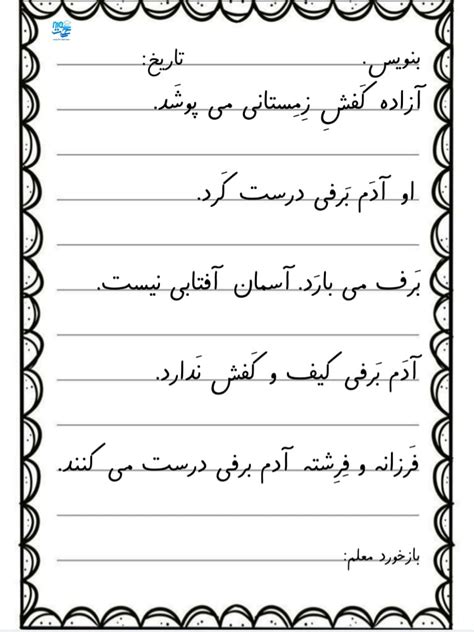 بنویس. تاریخ:
آزاده کَفشِ زِمِستانی می پوشَد.
او آدَم بَرفی درست کَرد.
بَرف می بارَد. آسمان آفتابی نیست.
آدَم بَرفی کیف و کَفش نَدارد.
فَرزانه و فِرِشته آدم برفی درست می کنند.
بازخورد معلم: